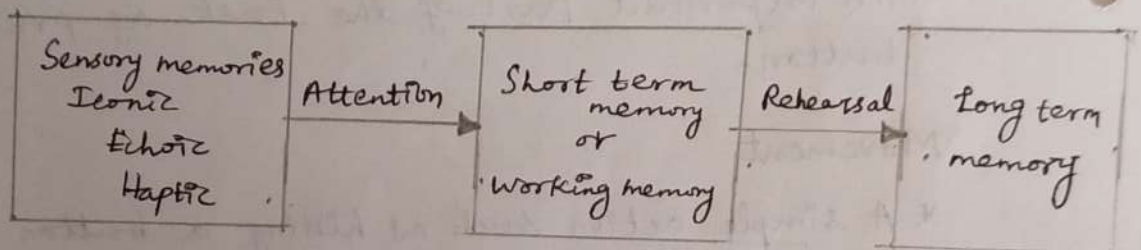 Sensory memories
Iconic
Echoic
Haptic
Attention
Short term
memory
or
working memory
Rehearsal
Long term
memory